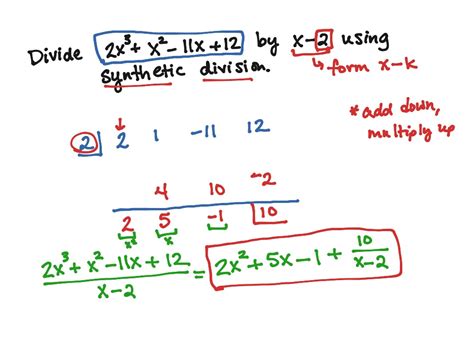 Divide 2x³+x²-11x+12 by x-2 using
synthetic division.
↳ form x-k
* add down,
multiply up
2 | 2 1 -11 12
4 10 -2
2 5 -1 10
x² x
2x³+x²-11x+12 / x-2 = 2x²+5x-1+ 10/x-2